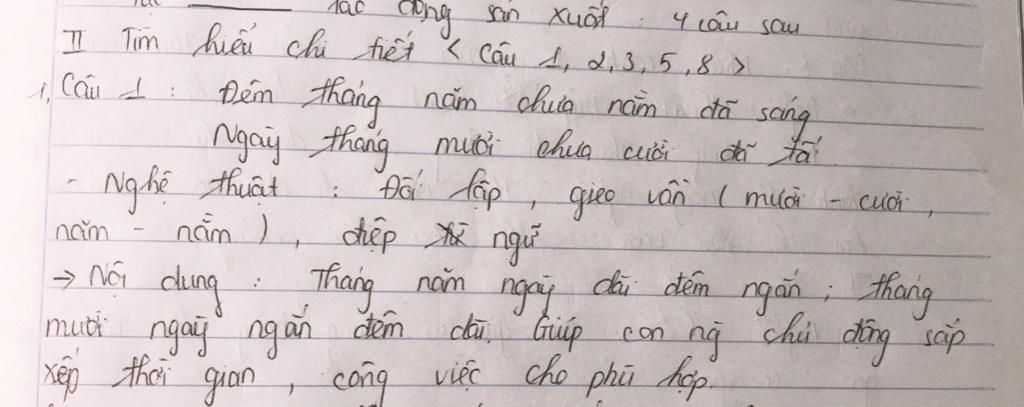 lao động sản xuất : 4 câu sau
II Tìm hiểu chi tiết < Câu 1, 2, 3, 5, 8 >
1, Câu 1 : Đêm tháng năm chưa nằm đã sáng
Ngày tháng mười chưa cười đã tối
- Nghệ thuật : Đối lập, gieo vần ( mười - cười,
năm - nằm ), điệp ngữ
→ Nội dung : Tháng năm ngày dài đêm ngắn ; tháng
mười ngày ngắn đêm dài. Giúp con ng chủ động sắp
xếp thời gian, công việc cho phù hợp.